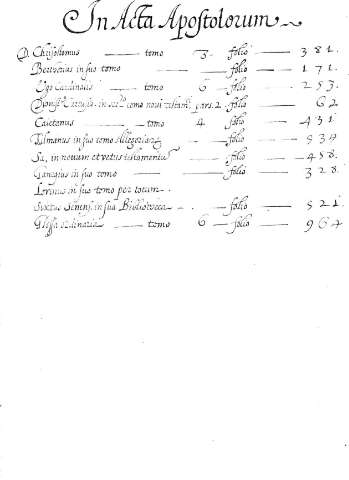 In Acta Apostolorum
D. Chrisostomus tomo 3. folio 381.
in suo tomo folio 171.
Ugo Cardinalis tomo 6 folio 253.
in tomo novi testam. pars. 2. folio 62
Caietanus tomo 4. folio 431.
Titlmanus in suo tomo Allegoriarum folio 534
Sa, in novum et vetus testamentum folio 458.
in suo tomo folio 328.
Lorinus in suo tomo per totum.
Sixtus Senens. in sua Bibliotheca folio 521.
Glossa ordinaria tomo 6 folio 964